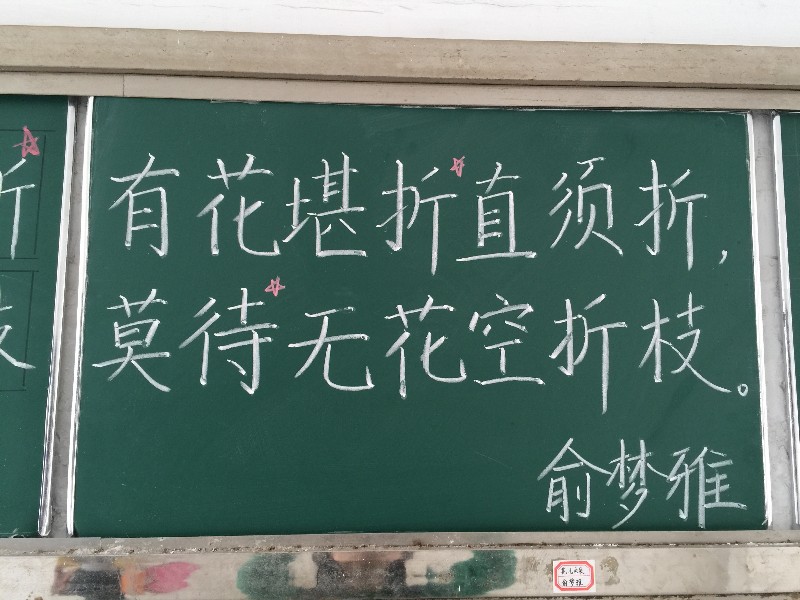 有花堪折直须折,
莫待无花空折枝。
俞梦雅
折
枝
俞梦雅